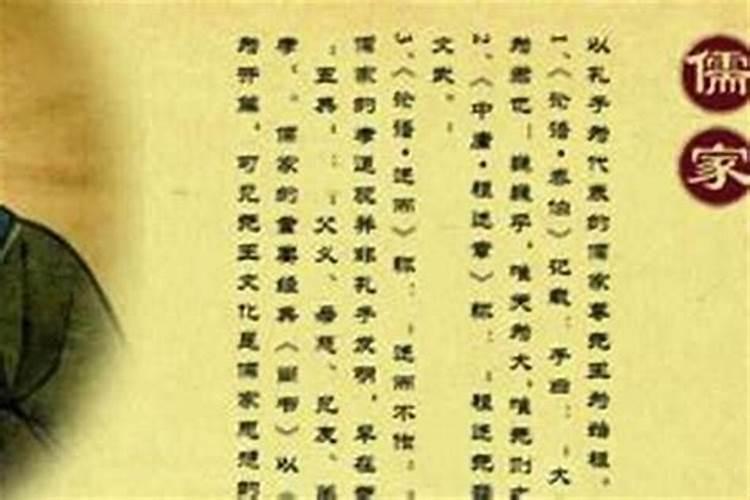 儒家
以孔子为代表的儒家尊尧王为始祖。
1、《论语·泰伯》记载：子曰：“大
为君也！巍巍乎，唯天为大，唯尧则
2、《中庸·祖述章》称：“祖述尧
文武。”
3、《论语·述而》称：“述而不作
儒家的孝道观并非孔子发明，早在
“五典”：“父义、母慈、兄友、
孝”。儒家的重要经典《尚书》以
为开篇，可见尧王文化是儒家思想的